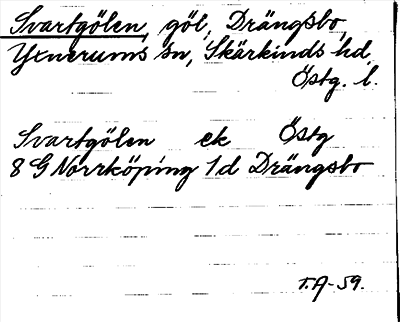 Svartgölen, göl, Drängsbo,
Yxnerums sn, Skärkinds hd,
Östg. l.
Svartgölen ek Östg
8 G Norrköping 1d Drängsbo
T.A-59.